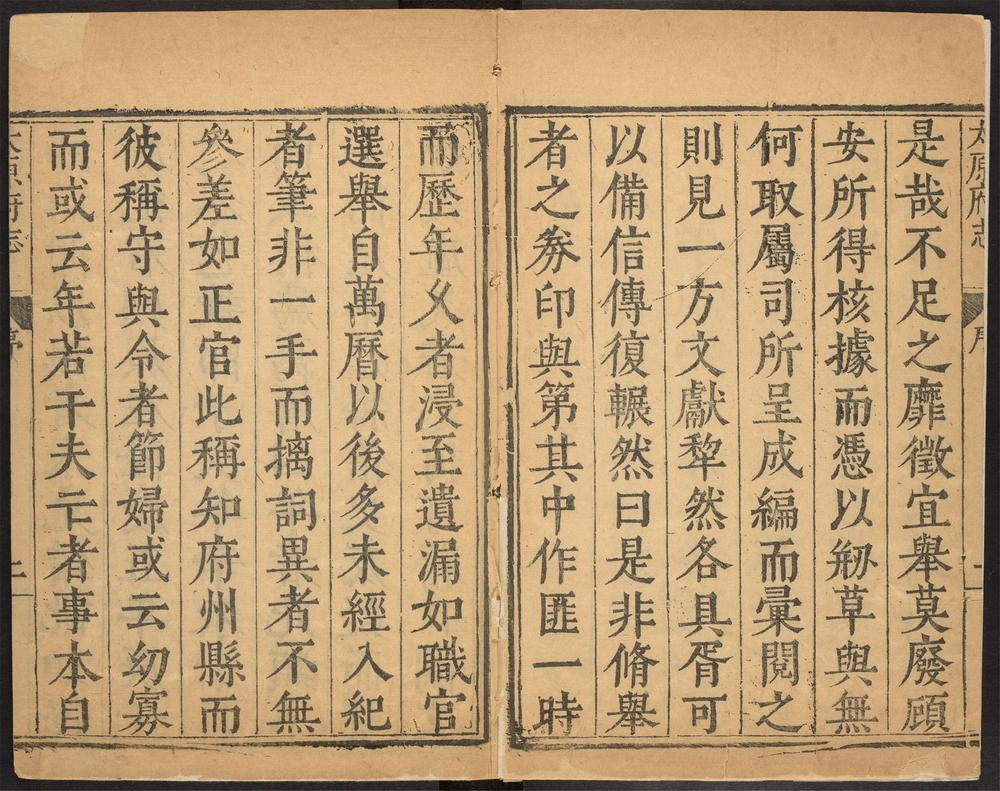 太原府志 序
是哉不足之靡徵宜舉莫廢顧
安所得核據而憑以剏草與無
何取屬司所呈成編而彙閱之
則見一方文獻犂然各具胥可
以備信傳復輾然曰是非脩舉
者之券印與第其中作匪一時
而歷年久者浸至遺漏如職官
選舉自萬曆以後多未經入紀
者筆非一手而摛詞異者不無
參差如正官此稱知府州縣而
彼稱守與令者節婦或云幼寡
而或云年若干夫亡者事本自
太原府志 序 二